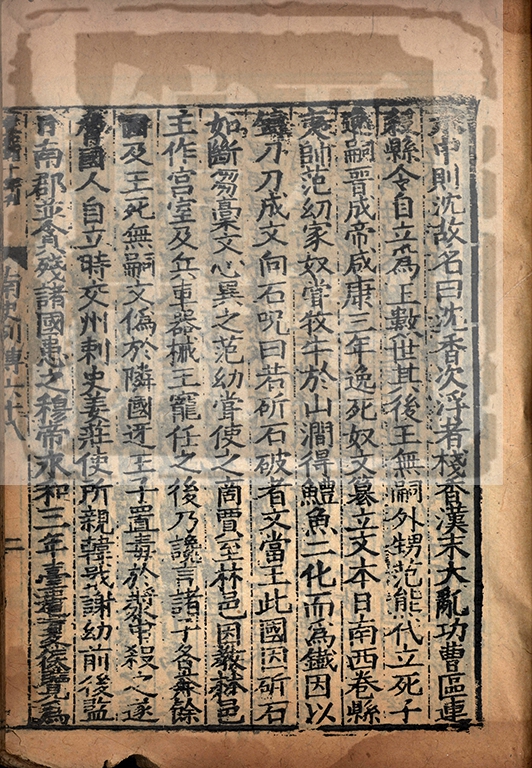 水中則沈故名曰沈香次浮者棧香漢末大亂功曹區連
殺縣令自立爲王數世其後王無嗣外甥范能代立死子
逸嗣晋成帝咸康三年逸死奴文簒立文本日南西卷縣
夷帥范幼家奴嘗牧牛於山澗得鱧魚二化而爲鐵因以
鑄刀刀成文向石呪曰若斫石破者文當王此國因斫石
如斷芻稾文心異之范幼嘗使之商賈至林邑因教林邑
王作宫室及兵車器械王寵任之後乃讒言諸子各奔餘
國及王死無嗣文僞於隣國迓王子置毒於漿中殺之遂
脅國人自立時交州刺史姜莊使所親韓戢謝幼前後監
日南郡並貪殘諸國患之穆帝永和三年臺遣夏侯覽爲
南史列傳六十八
二